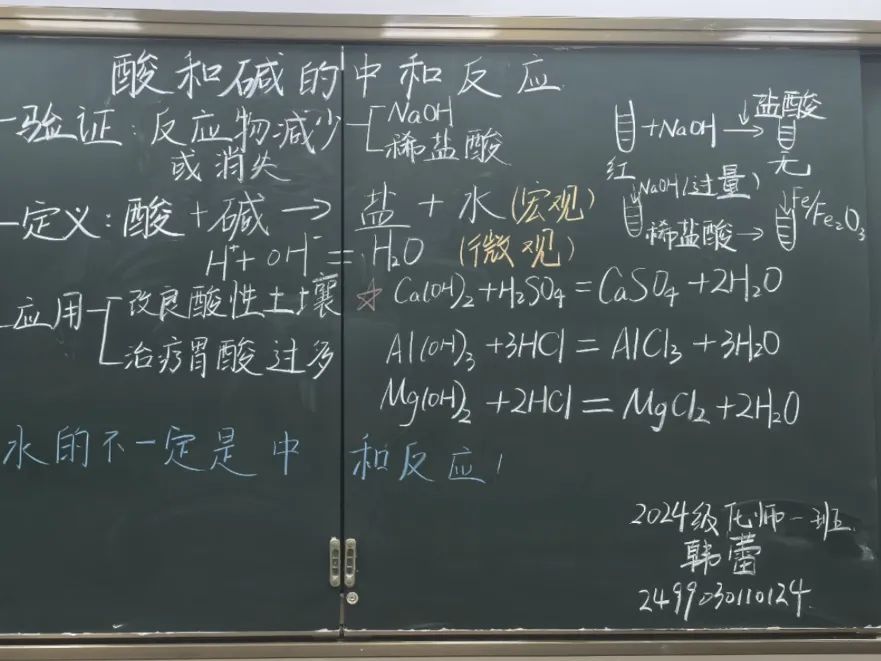 酸和碱的中和反应
一验证:反应物减少 NaOH
或消失 稀盐酸
一定义:酸+碱→盐+水(宏观)
H⁺+OH⁻=H₂O (微观)
应用 改良酸性土壤
治疗胃酸过多
☆Ca(OH)₂+H₂SO₄=CaSO₄+2H₂O
Al(OH)₃+3HCl=AlCl₃+3H₂O
Mg(OH)₂+2HCl=MgCl₂+2H₂O
水的不一定是中和反应!
盐酸
+NaOH→
红 无
NaOH(过量) Fe/Fe₂O₃
稀盐酸→
2024级化师一班
韩蕾
2499030110124